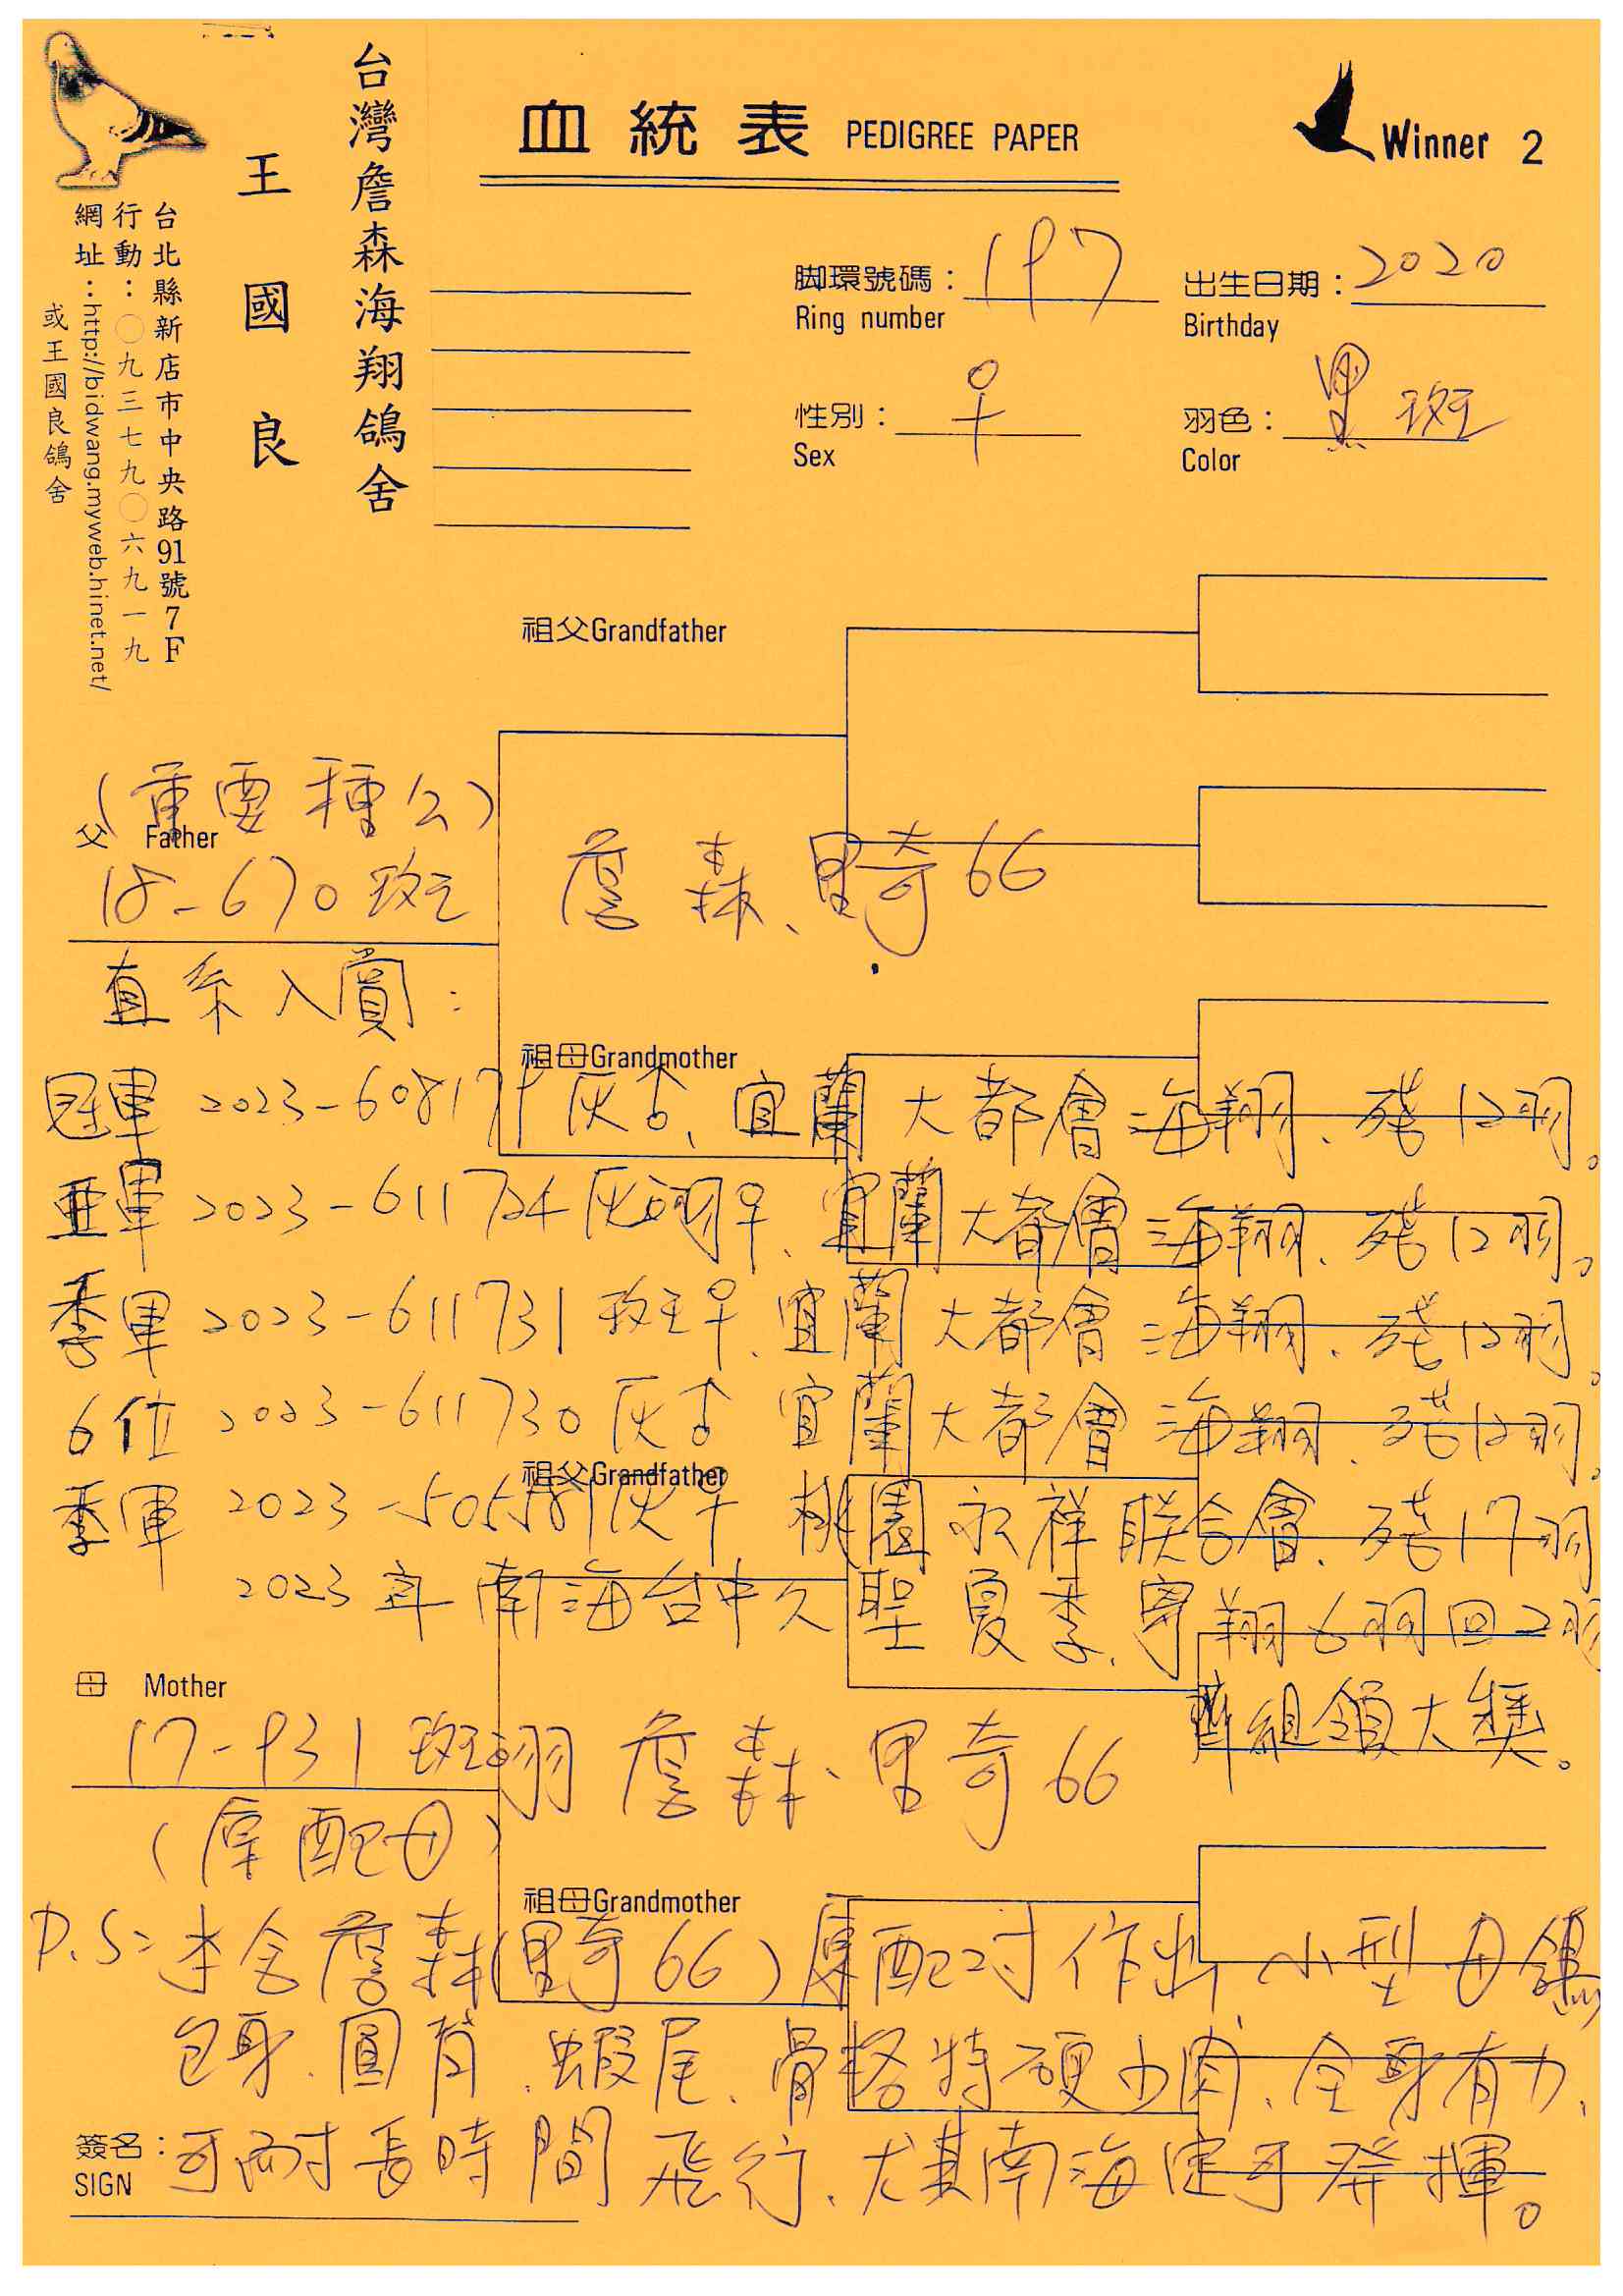 血統表 PEDIGREE PAPER
Winner 2
台灣詹森海翔鴿舍
王國良
台北縣新店市中央路91號7F
行動：〇九三七九〇六九一九
網址：http://bidwang.myweb.hinet.net/
或王國良鴿舍
脚環號碼： 197
Ring number
出生日期： 2020
Birthday
性別： ♀
Sex
羽色： 黑斑
Color
祖父Grandfather
(重要種公)
父 Father
18-670 斑
詹森、里奇66
直系入賞：
祖母Grandmother
冠軍 2023-608171 灰♂、宜蘭大都會海翔、殘12羽。
亞軍 2023-611724 灰翊♀、宜蘭大都會海翔、殘12羽。
季軍 2023-611731 斑♀、宜蘭大都會海翔、殘12羽。
6位 2023-611730 灰♂ 宜蘭大都會海翔、殘12羽。
祖父Grandfather
季軍 2023-505 灰♀ 桃園永祥联合會、殘17羽
2023年南海台中久聖夏季、寄翔6羽回2羽
齊組領大獎。
母 Mother
17-931 斑翊 詹森、里奇66
(原配母)
祖母Grandmother
P.S: 本舍詹森(里奇66)原配对作出、小型母鴿
包身、圓背、蝦尾、骨格特硬少肉、全身有力、
簽名： 可耐長時間飛行、尤其南海定可發揮。
SIGN